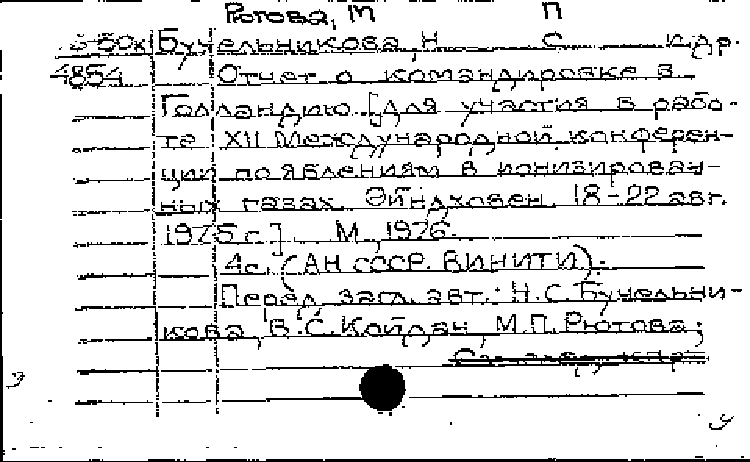 Рютова, М П
Бучельникова, Н С и др.
4854 Отчет о командировке в
Голландию. [Для участия в рабо-
те XII Международной конферен-
ции по явлениям в ионизирован-
ных газах. Эйндховен, 18-22 авг.
1975 г.]. М., 1976.
4с. (АН СССР. ВИНИТИ).
Перед загл. авт.: Н.С. Бучельни-
кова, В.С. Койдан, М.П. Рютова;